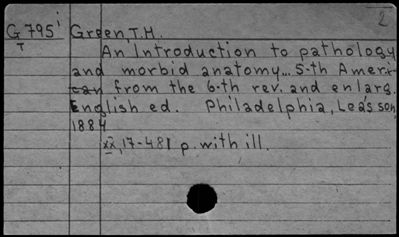 2
G 795i Green, T.H.
T
An Introduction to pathology
and morbid anatomy... 5-th Ameri-
can from the 6-th rev. and enlarg.
English ed. Philadelphia, Lea's son,
1884
xx, 17-481 p. with ill.